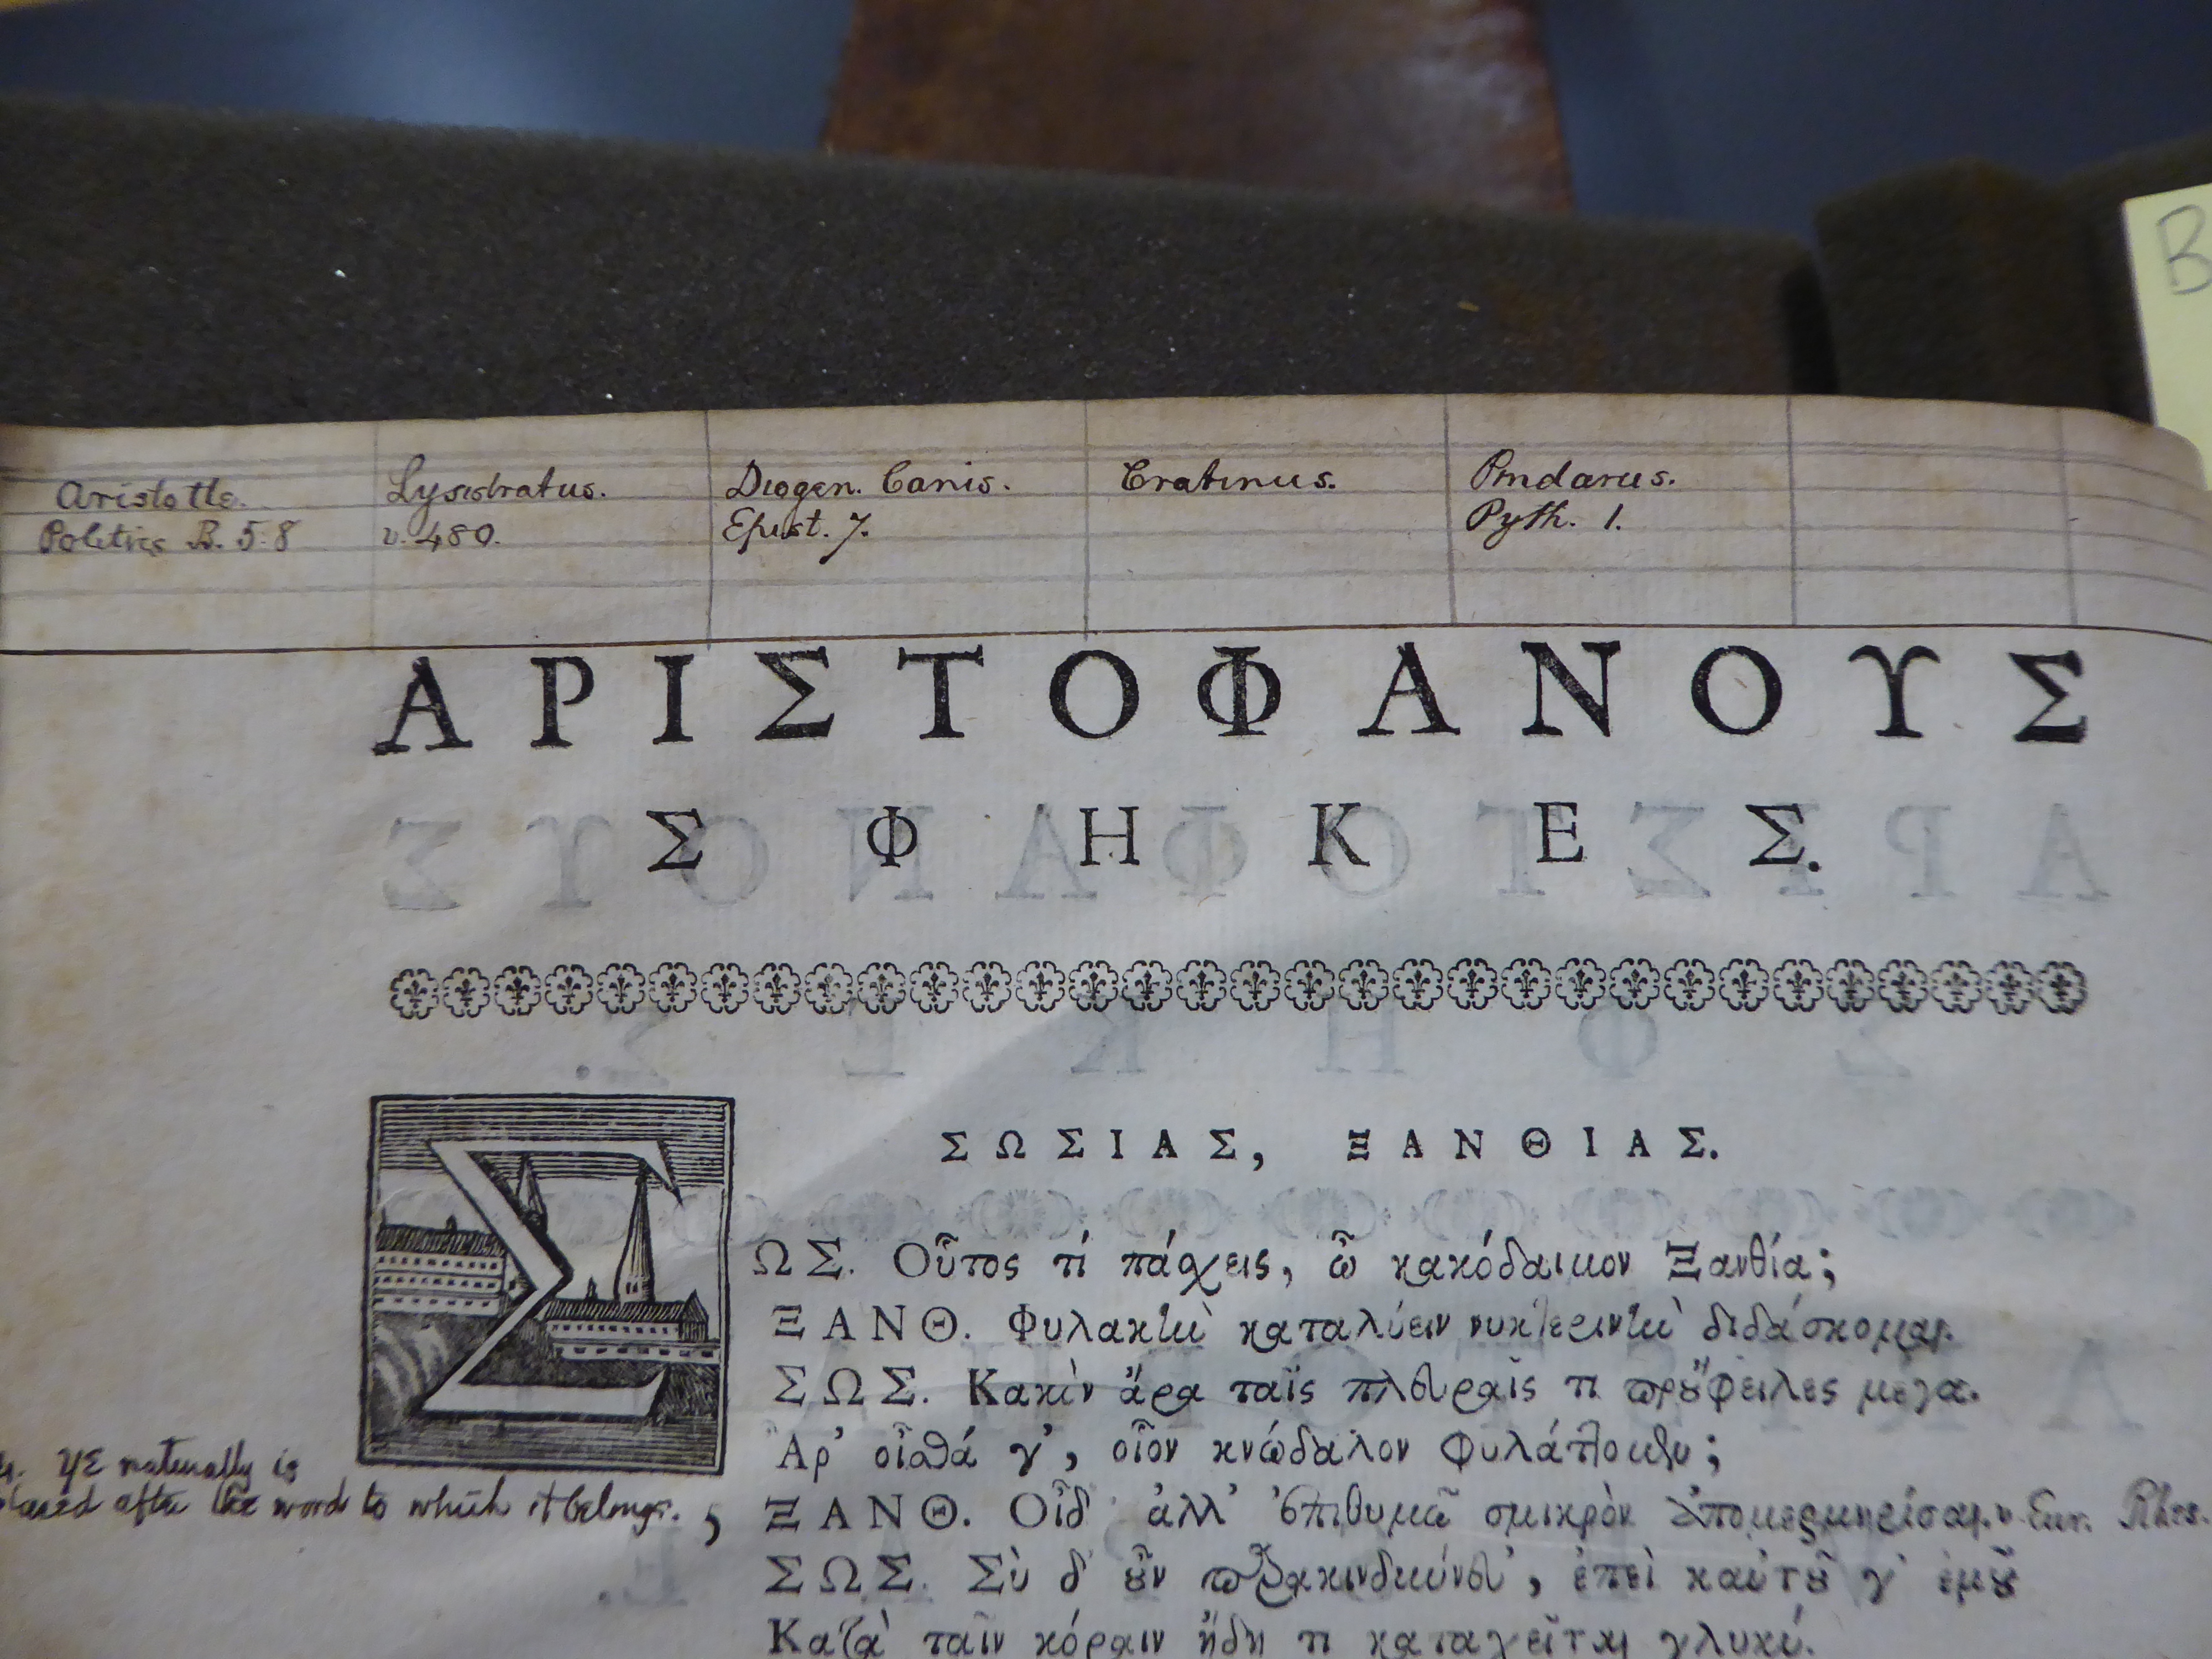 B
Aristotle. Lysistratus. Diogen. Canis. Cratinus. Pindarus.
Politics B. 5.8 v. 480. Epist. 7. Pyth. 1.
ΑΡΙΣΤΟΦΑΝΟΥΣ
ΣΦΗΚΕΣ.
ΣΩΣΙΑΣ, ΞΑΝΘΙΑΣ.
ΣΩΣ. Οὗτος τί πάχεις, ὦ κακόδαιμον Ξανθία;
ΞΑΝΘ. Φυλακὴν καταλύειν νυκτερινὴν διδάσκομαι.
ΣΩΣ. Κακὸν ἄρα ταῖς πλευραῖς τι προὔφειλες μέγα.
Ἆρ' οἶσθά γ', οἷον κνώδαλον φυλάττομεν;
γε naturally is
placed after the word to which it belongs.
ΞΑΝΘ. Οἶδ' ἀλλ' ἐπιθυμῶ σμικρὸν ἀπομερμηρίσαι. Eur. Rhes.
ΣΩΣ. Σὺ δ' οὖν παρακινδύνευ', ἐπεὶ καὐτοῦ γ' ἐμοῦ
Κατὰ ταῖν κόραιν ἤδη τι καταχεῖται γλυκύ.